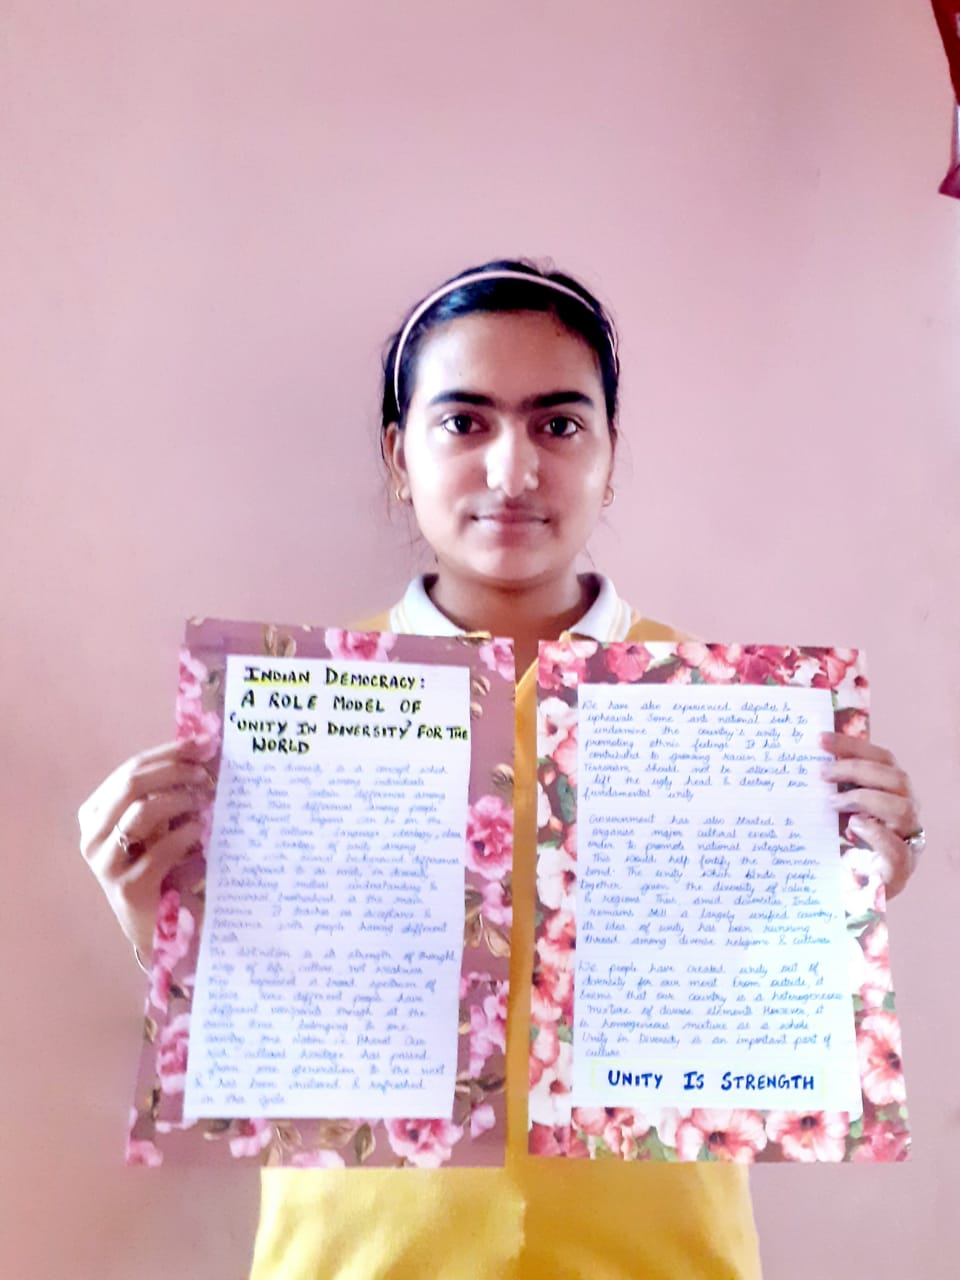 INDIAN DEMOCRACY:
A ROLE MODEL OF
'UNITY IN DIVERSITY' FOR THE
WORLD
Unity in diversity is a concept which
signifies unity among individuals
who have certain differences among
them. These differences among people
of different regions can be on the
basis of culture, language, ideology, class
etc. The of unity among
people with diverse background differences
is referred to as unity in diversity.
Establishing mutual understanding &
universal brotherhood is the main
essence. It teaches us acceptance &
tolerance with people having different
The distinction is its strength of thought,
way of life, culture, not weakness
They represent a broad spectrum of
different people have
different viewpoints though at the
same time belonging to one
country one Nation i.e Bharat. Our
rich cultural heritage has passed
from one generation to the next
& has been & refreshed
in the
We have also experienced disputes &
upheavals. Some anti national seek to
undermine the country's unity by
promoting ethnic feelings. It has
contributed to growing racism & disharmony
Terrorism should not be allowed to
lift the ugly head & destroy our
fundamental unity
Government has also started to
organise major cultural events in
order to promote national integration
This would help fortify the common
bond. The unity which binds people
together given the diversity of value,
& regions. Thus, amid diversities, India
remains still a largely unified country.
Its idea of unity has been running
thread among diverse religions & cultures
We people have created unity out of
diversity for our merit. From outside, it
seems that our country is a heterogeneous
mixture of diverse elements. However, it
is homogeneous mixture as a whole.
Unity in Diversity is an important part of
culture.
UNITY IS STRENGTH